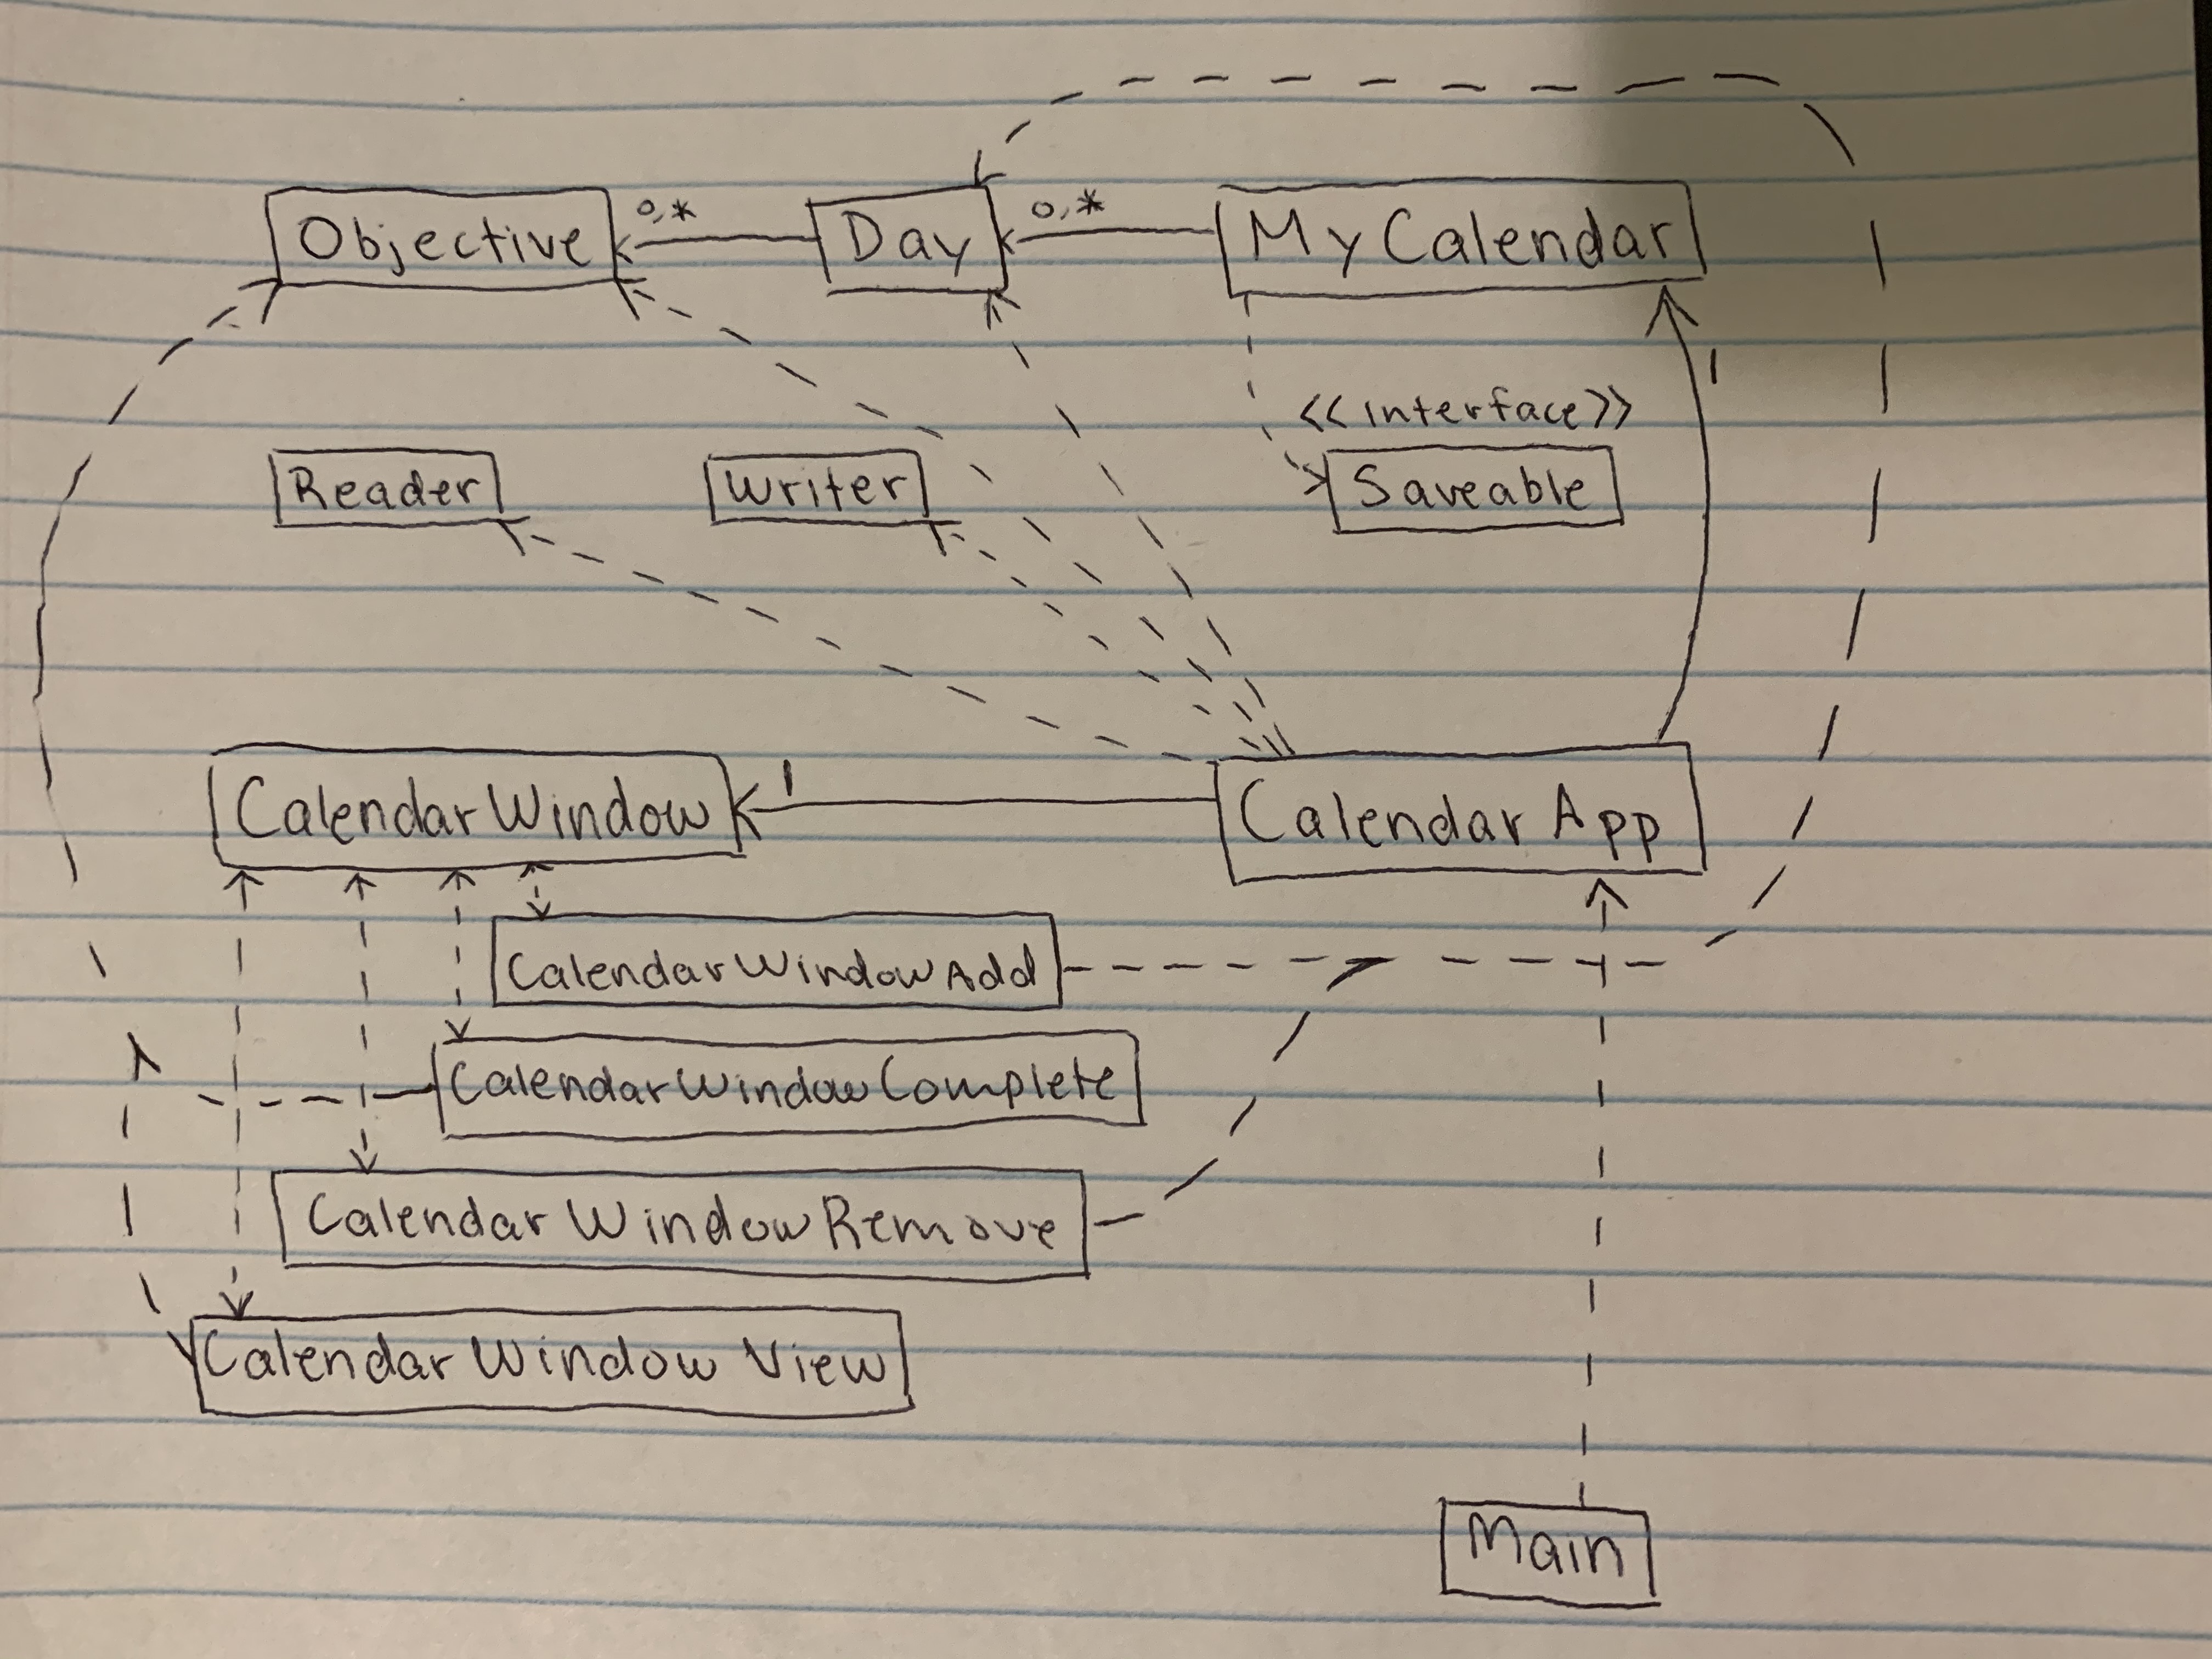 0,*
0,*
Objective
Day
MyCalendar
1
<<interface>>
Reader
Writer
Saveable
1
CalendarWindow
CalendarApp
CalendarWindowAdd
CalendarWindowComplete
CalendarWindowRemove
CalendarWindowView
Main